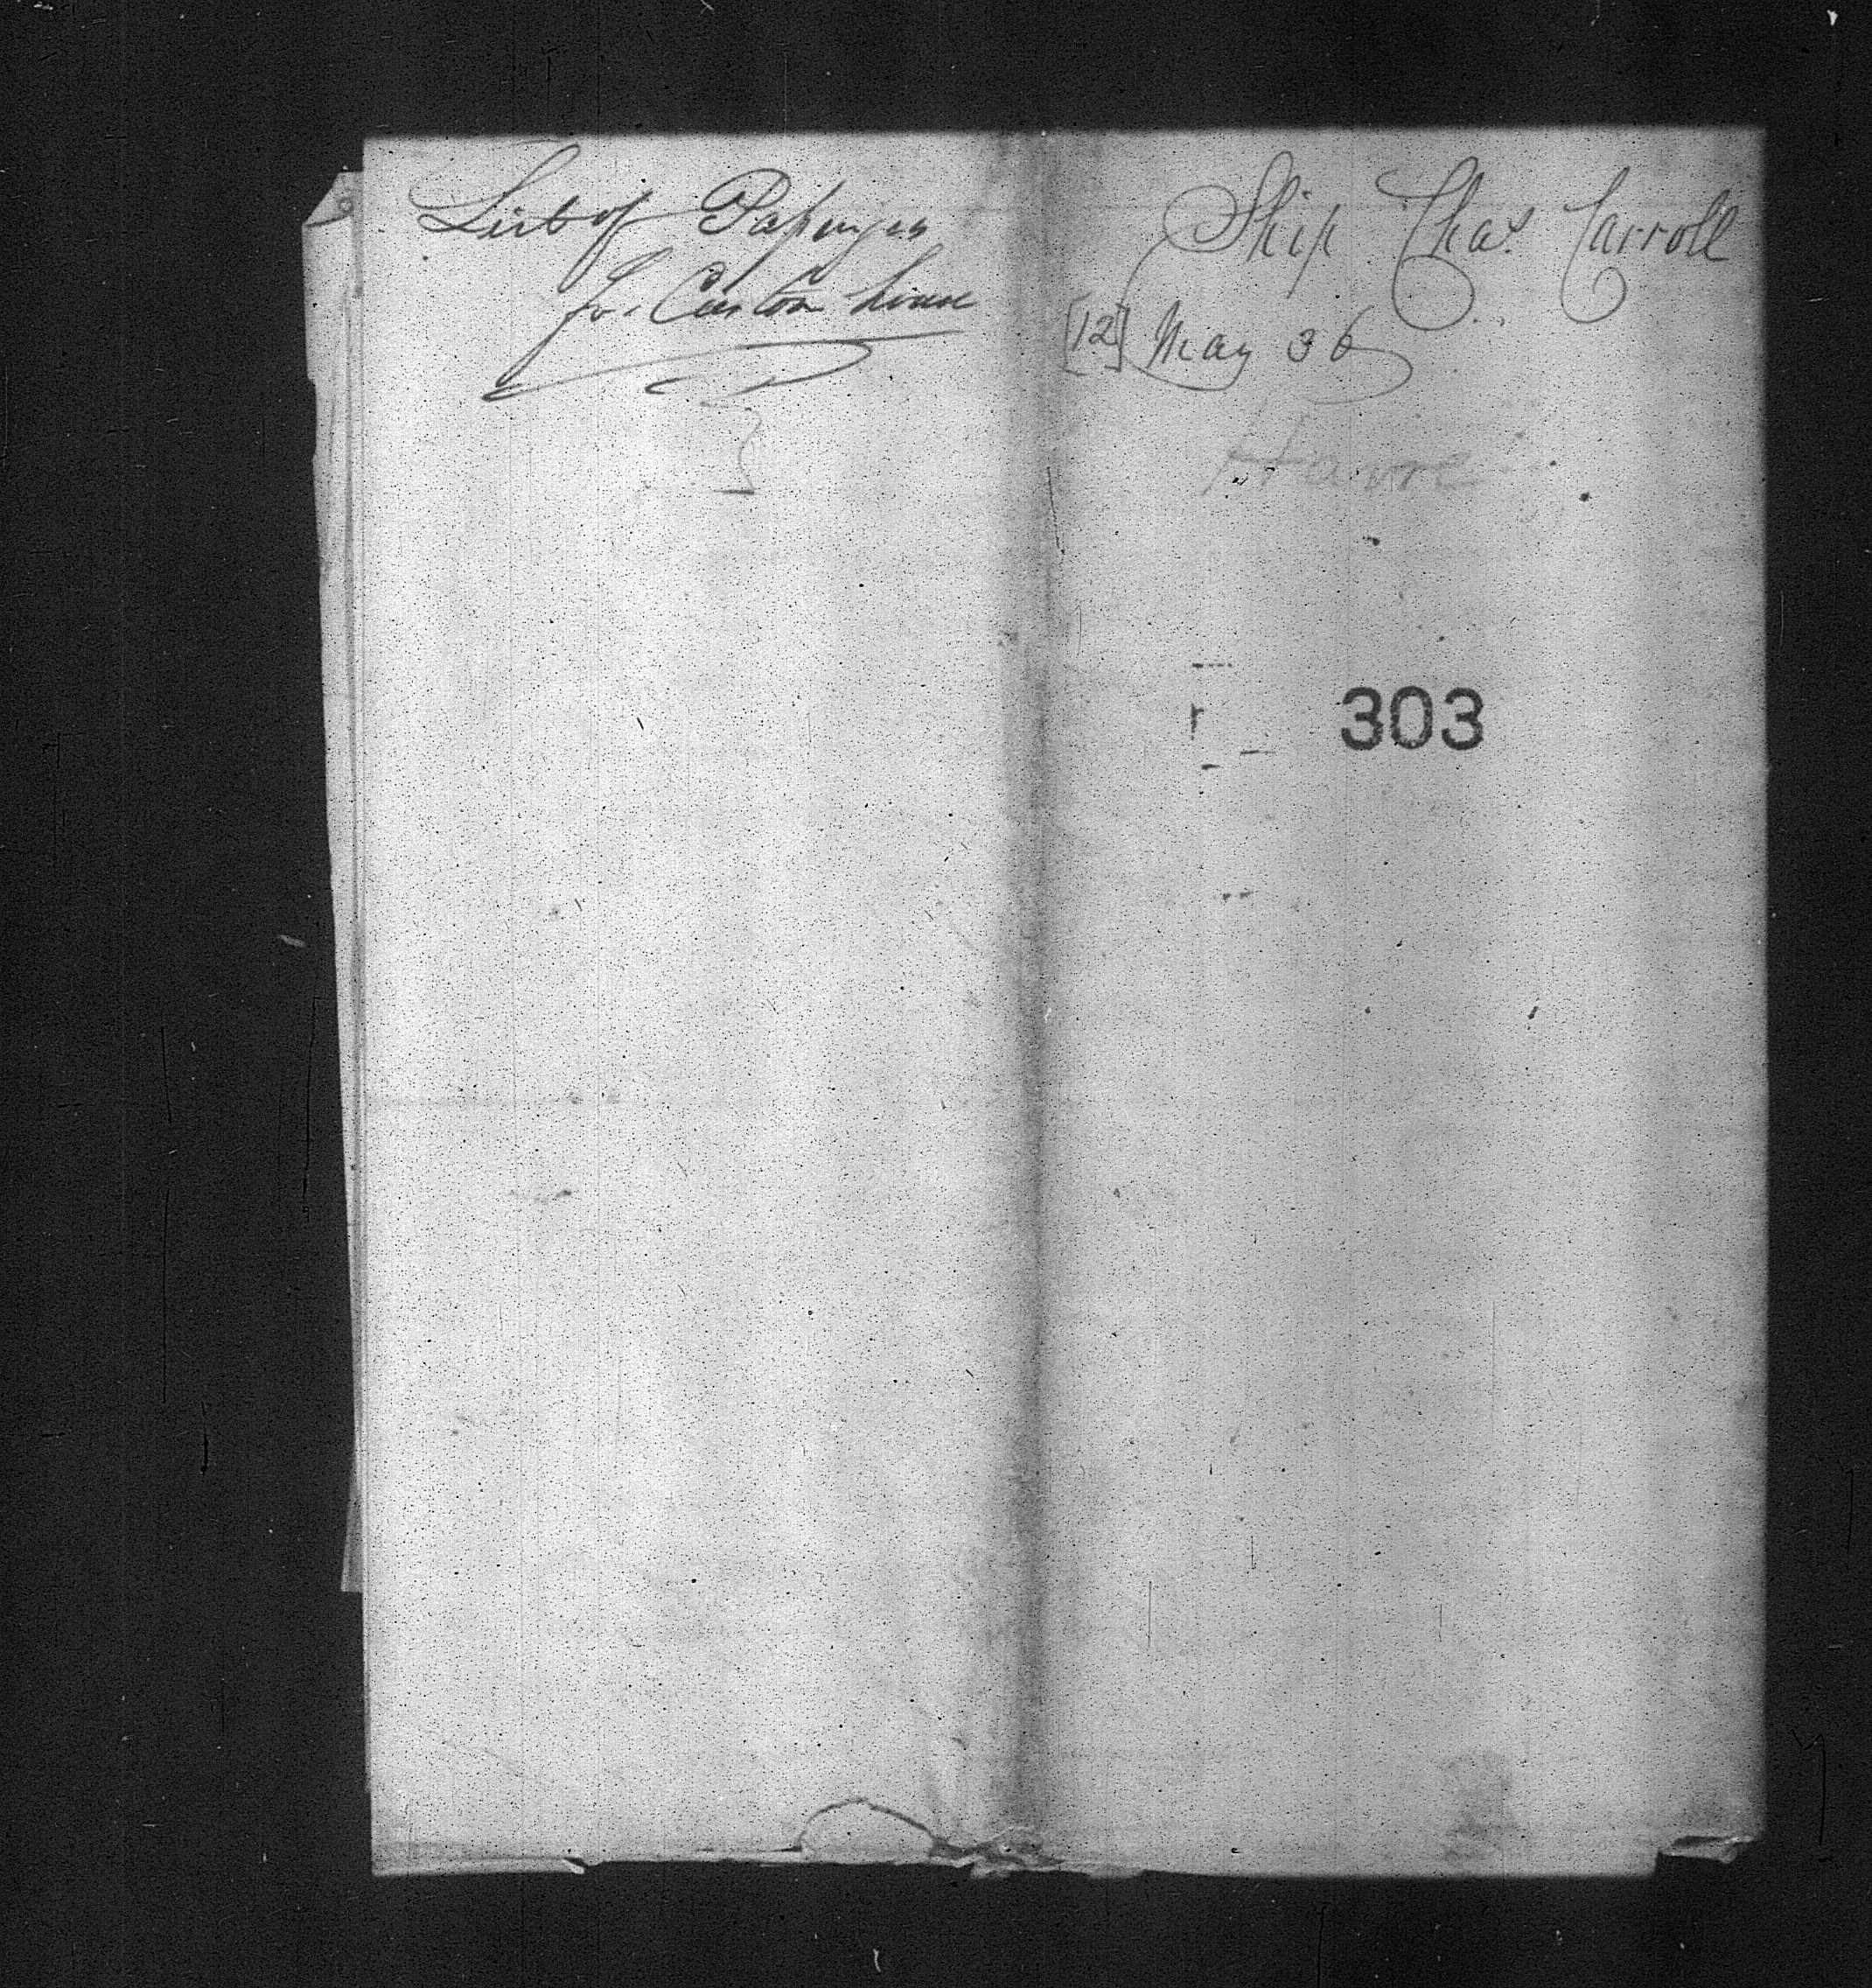 List of Passenger
for Custom house
Ship Chas Carroll
[12] May 36
Havre
303